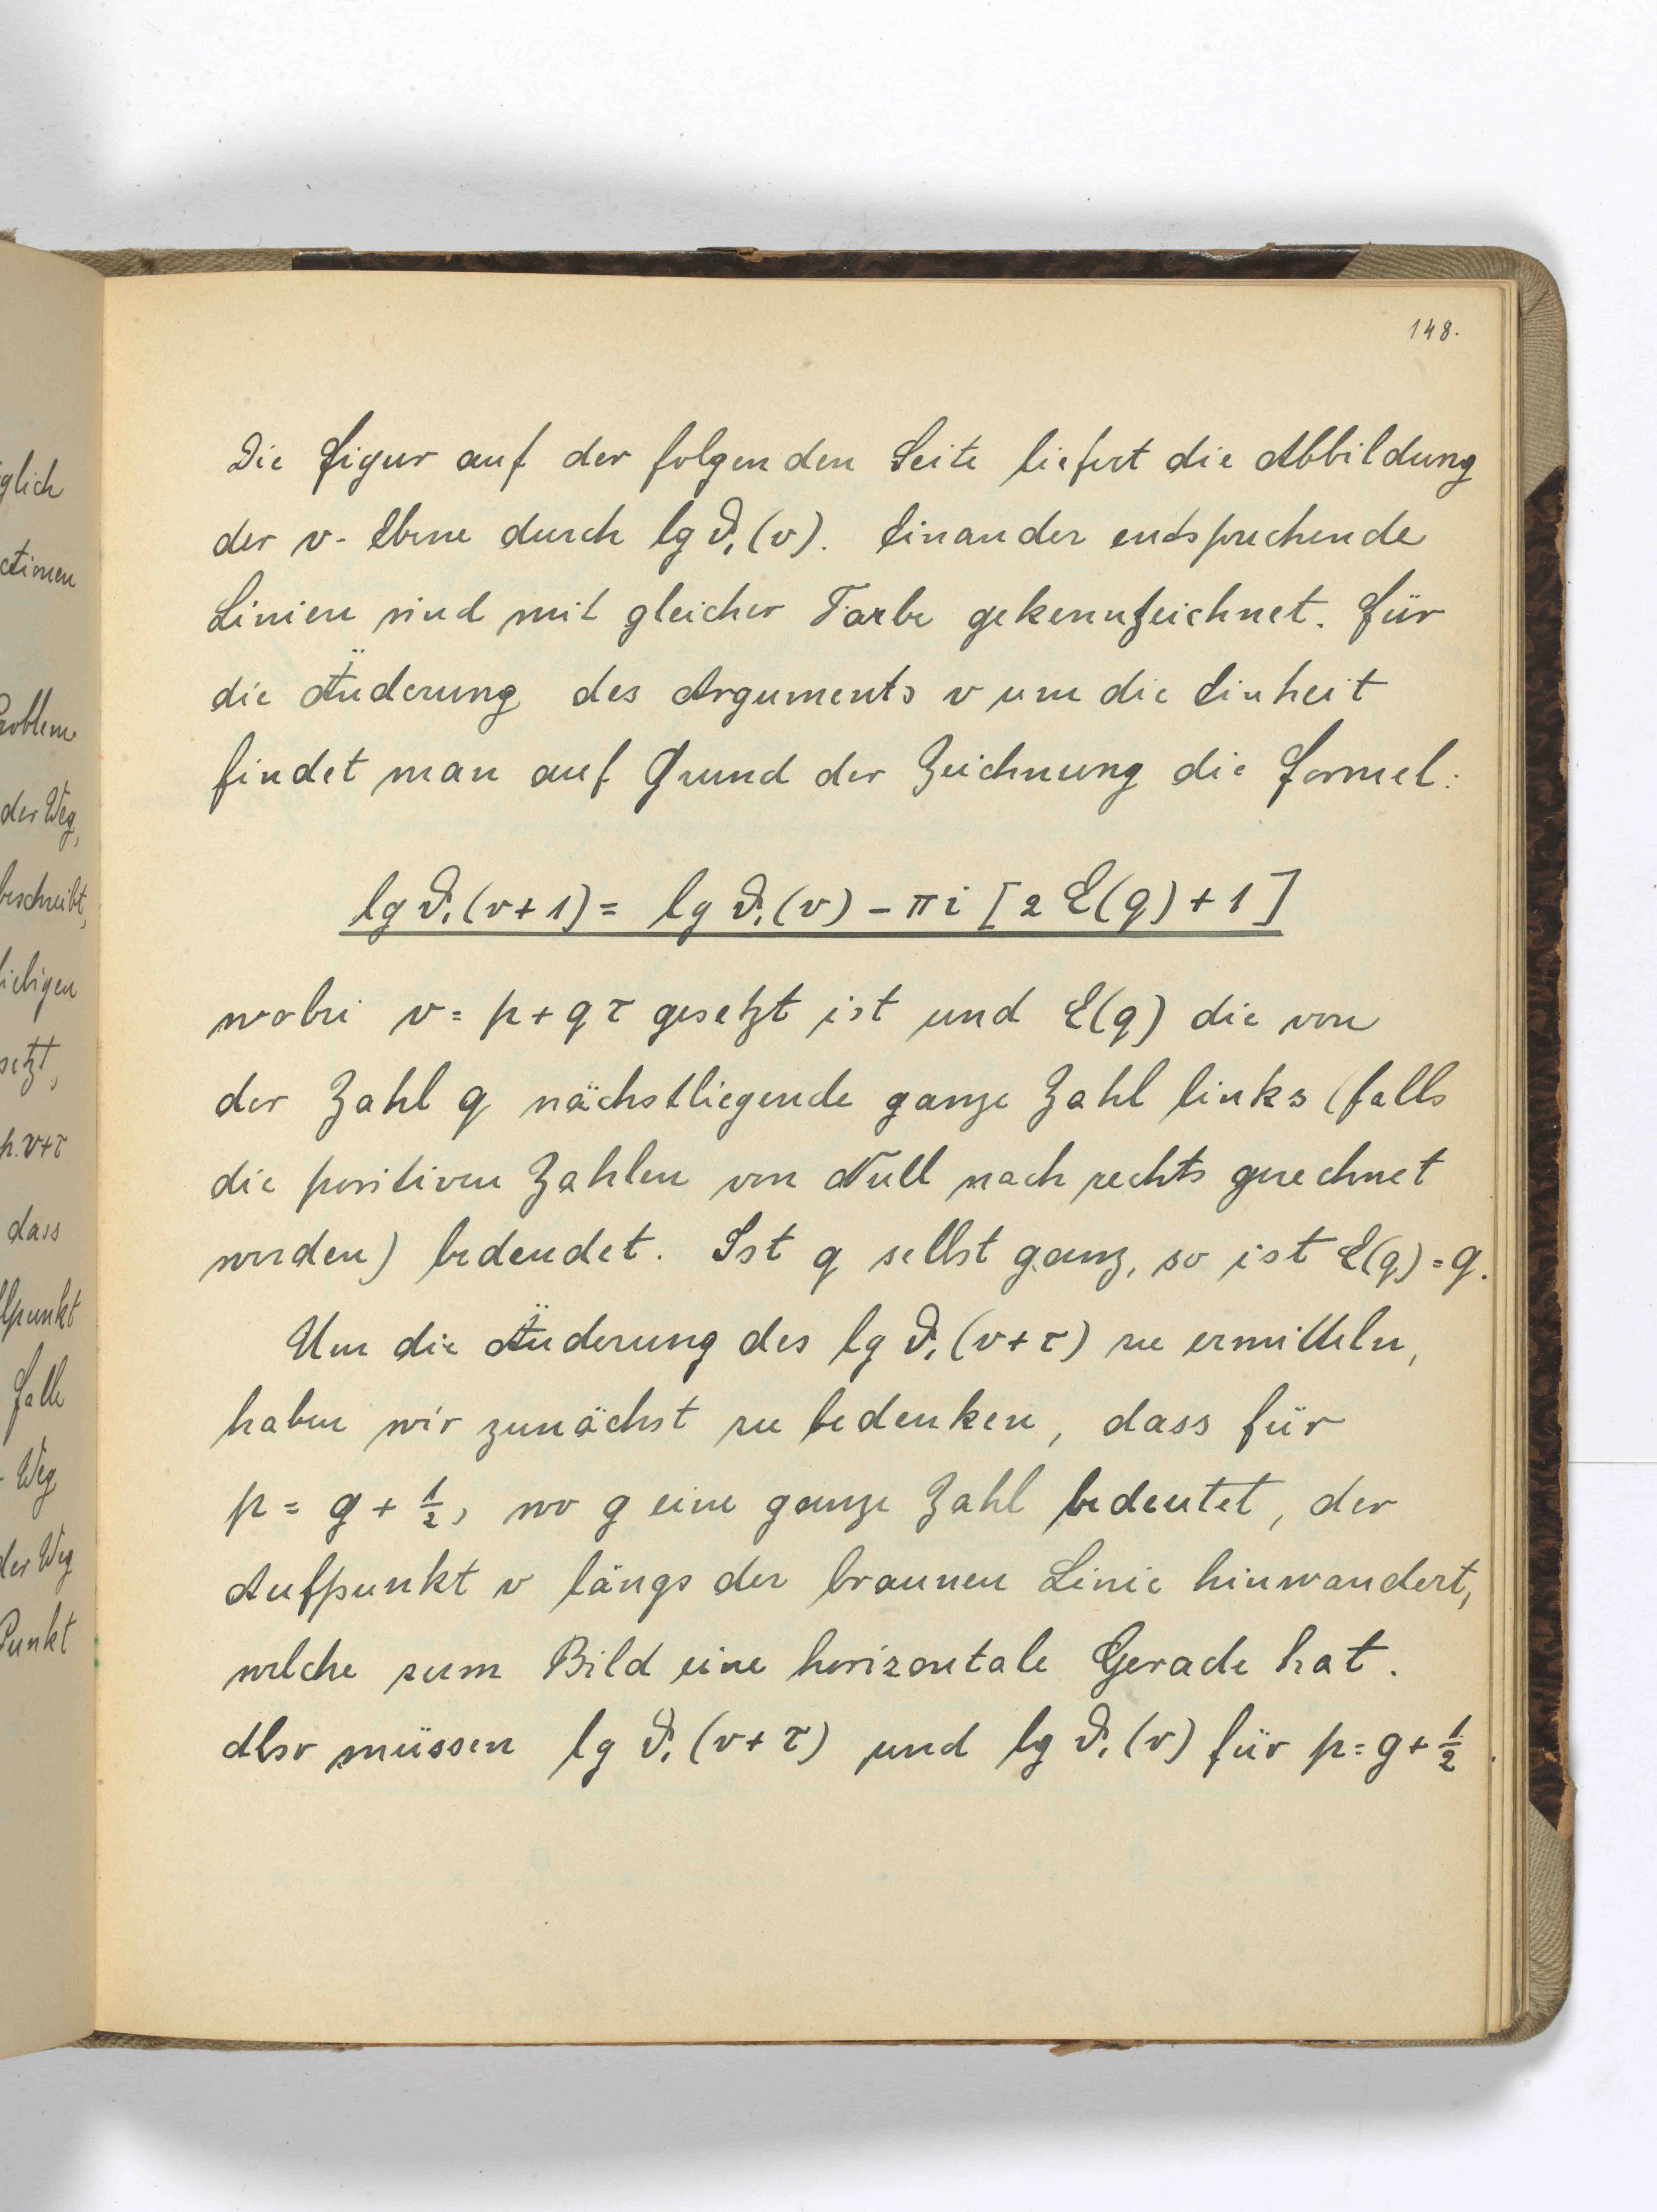 glich
ctionen
Problem
der Weg,
beschreibt,
liebigen
setzt,
p. v+τ
dass
llpunkt
Falle
- Weg
der Weg
Punkt
148.
Die Figur auf der folgenden Seite liefert die Abbildung
der v-Ebene durch lg ϑ₁(v). Einander entsprechende
Linien sind mit gleicher Farbe gekennzeichnet. Für
die Änderung des Arguments v um die Einheit
findet man auf Grund der Zeichnung die Formel:
lg ϑ₁(v+1) = lg ϑ₁(v) - πi [2 E(q) + 1]
wobei v = p + qτ gesetzt ist und E(q) die von
der Zahl q nächstliegende ganze Zahl links (falls
die positiven Zahlen von Null nach rechts gerechnet
werden) bedeudet. Ist q selbst ganz, so ist E(q) = q.
Um die Änderung des lg ϑ₁(v+τ) zu ermitteln,
haben wir zunächst zu bedenken, dass für
p = g + 1/2, wo g eine ganze Zahl bedeutet, der
Aufpunkt v längs der braunen Linie hinwandert,
welche zum Bild eine horizontale Gerade hat.
Also müssen lg ϑ₁(v+τ) und lg ϑ₁(v) für p = g + 1/2